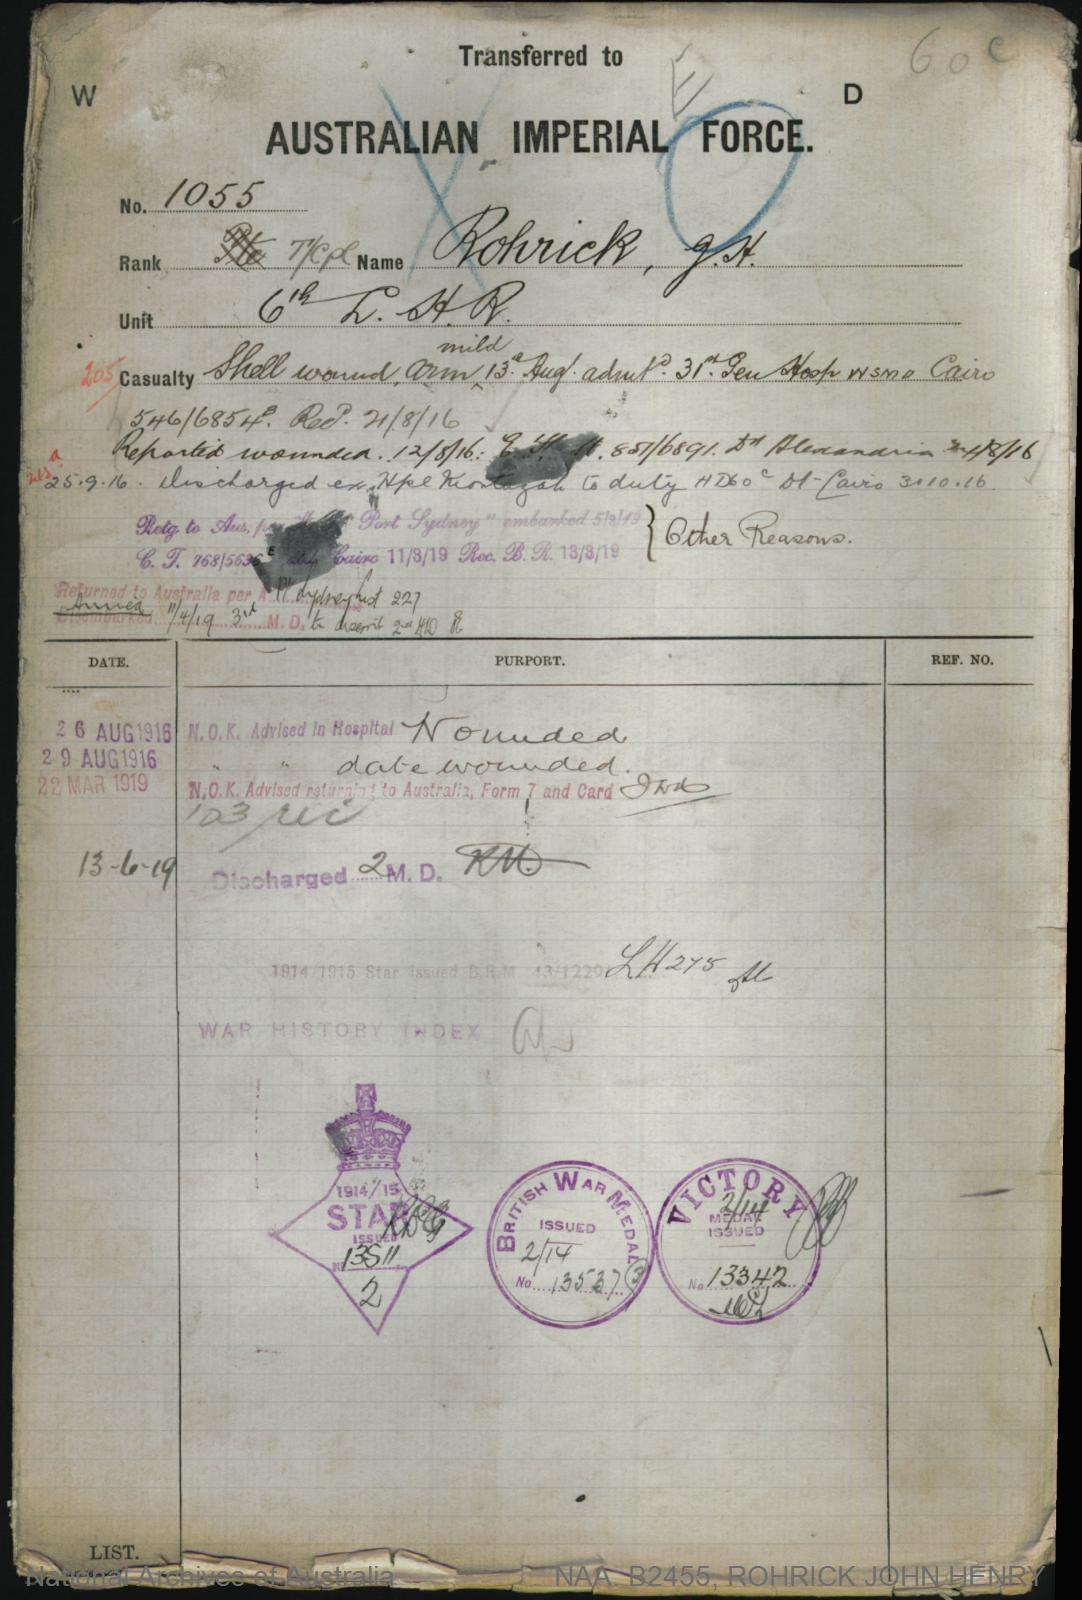 60 c
Transferred to
W D
AUSTRALIAN IMPERIAL FORCE.
No. 1055
Rank Pte T/Cpl Name Rohrick, J. H.
Unit 6th L. H. R.
mild
205 Casualty Shell wound, arm 13th Aug. admtd. 31st Gen Hosp Cairo
546/6854 Recd. 21/8/16
Reported wounded. 12/8/16: 851/6891. Dd Alexandria /8/16
25.9.16. Discharged ex. Hpl Montazah to duty Dd Cairo 3.10.16.
Retg. to Aus. "Port Sydney" embarked 5/3/19 } Other Reasons.
C. T. 768/5636 Cairo 11/3/19 Rec. B. R. 13/3/19
Returned to Australia per Pt Sydney list 227
Disembarked 11/4/19 3rd M. D. 2nd MD
DATE. PURPORT. REF. NO.
26 AUG 1916 N.O.K. Advised in Hospital Wounded
29 AUG 1916 " " date wounded.
22 MAR 1919 N.O.K. Advised returning to Australia, Form 7 and Card
103/
13-6-19 Discharged 2 M. D.
1914/1915 Star Issued B.R.M 43/1229 LH 275
WAR HISTORY INDEX
1914/15 STAR ISSUED No 13511 2
BRITISH WAR MEDAL ISSUED 2/14 No 13537 3
VICTORY MEDAL ISSUED 2/14 No 13342
LIST.
National Archives of Australia NAA: B2455, ROHRICK JOHN HENRY